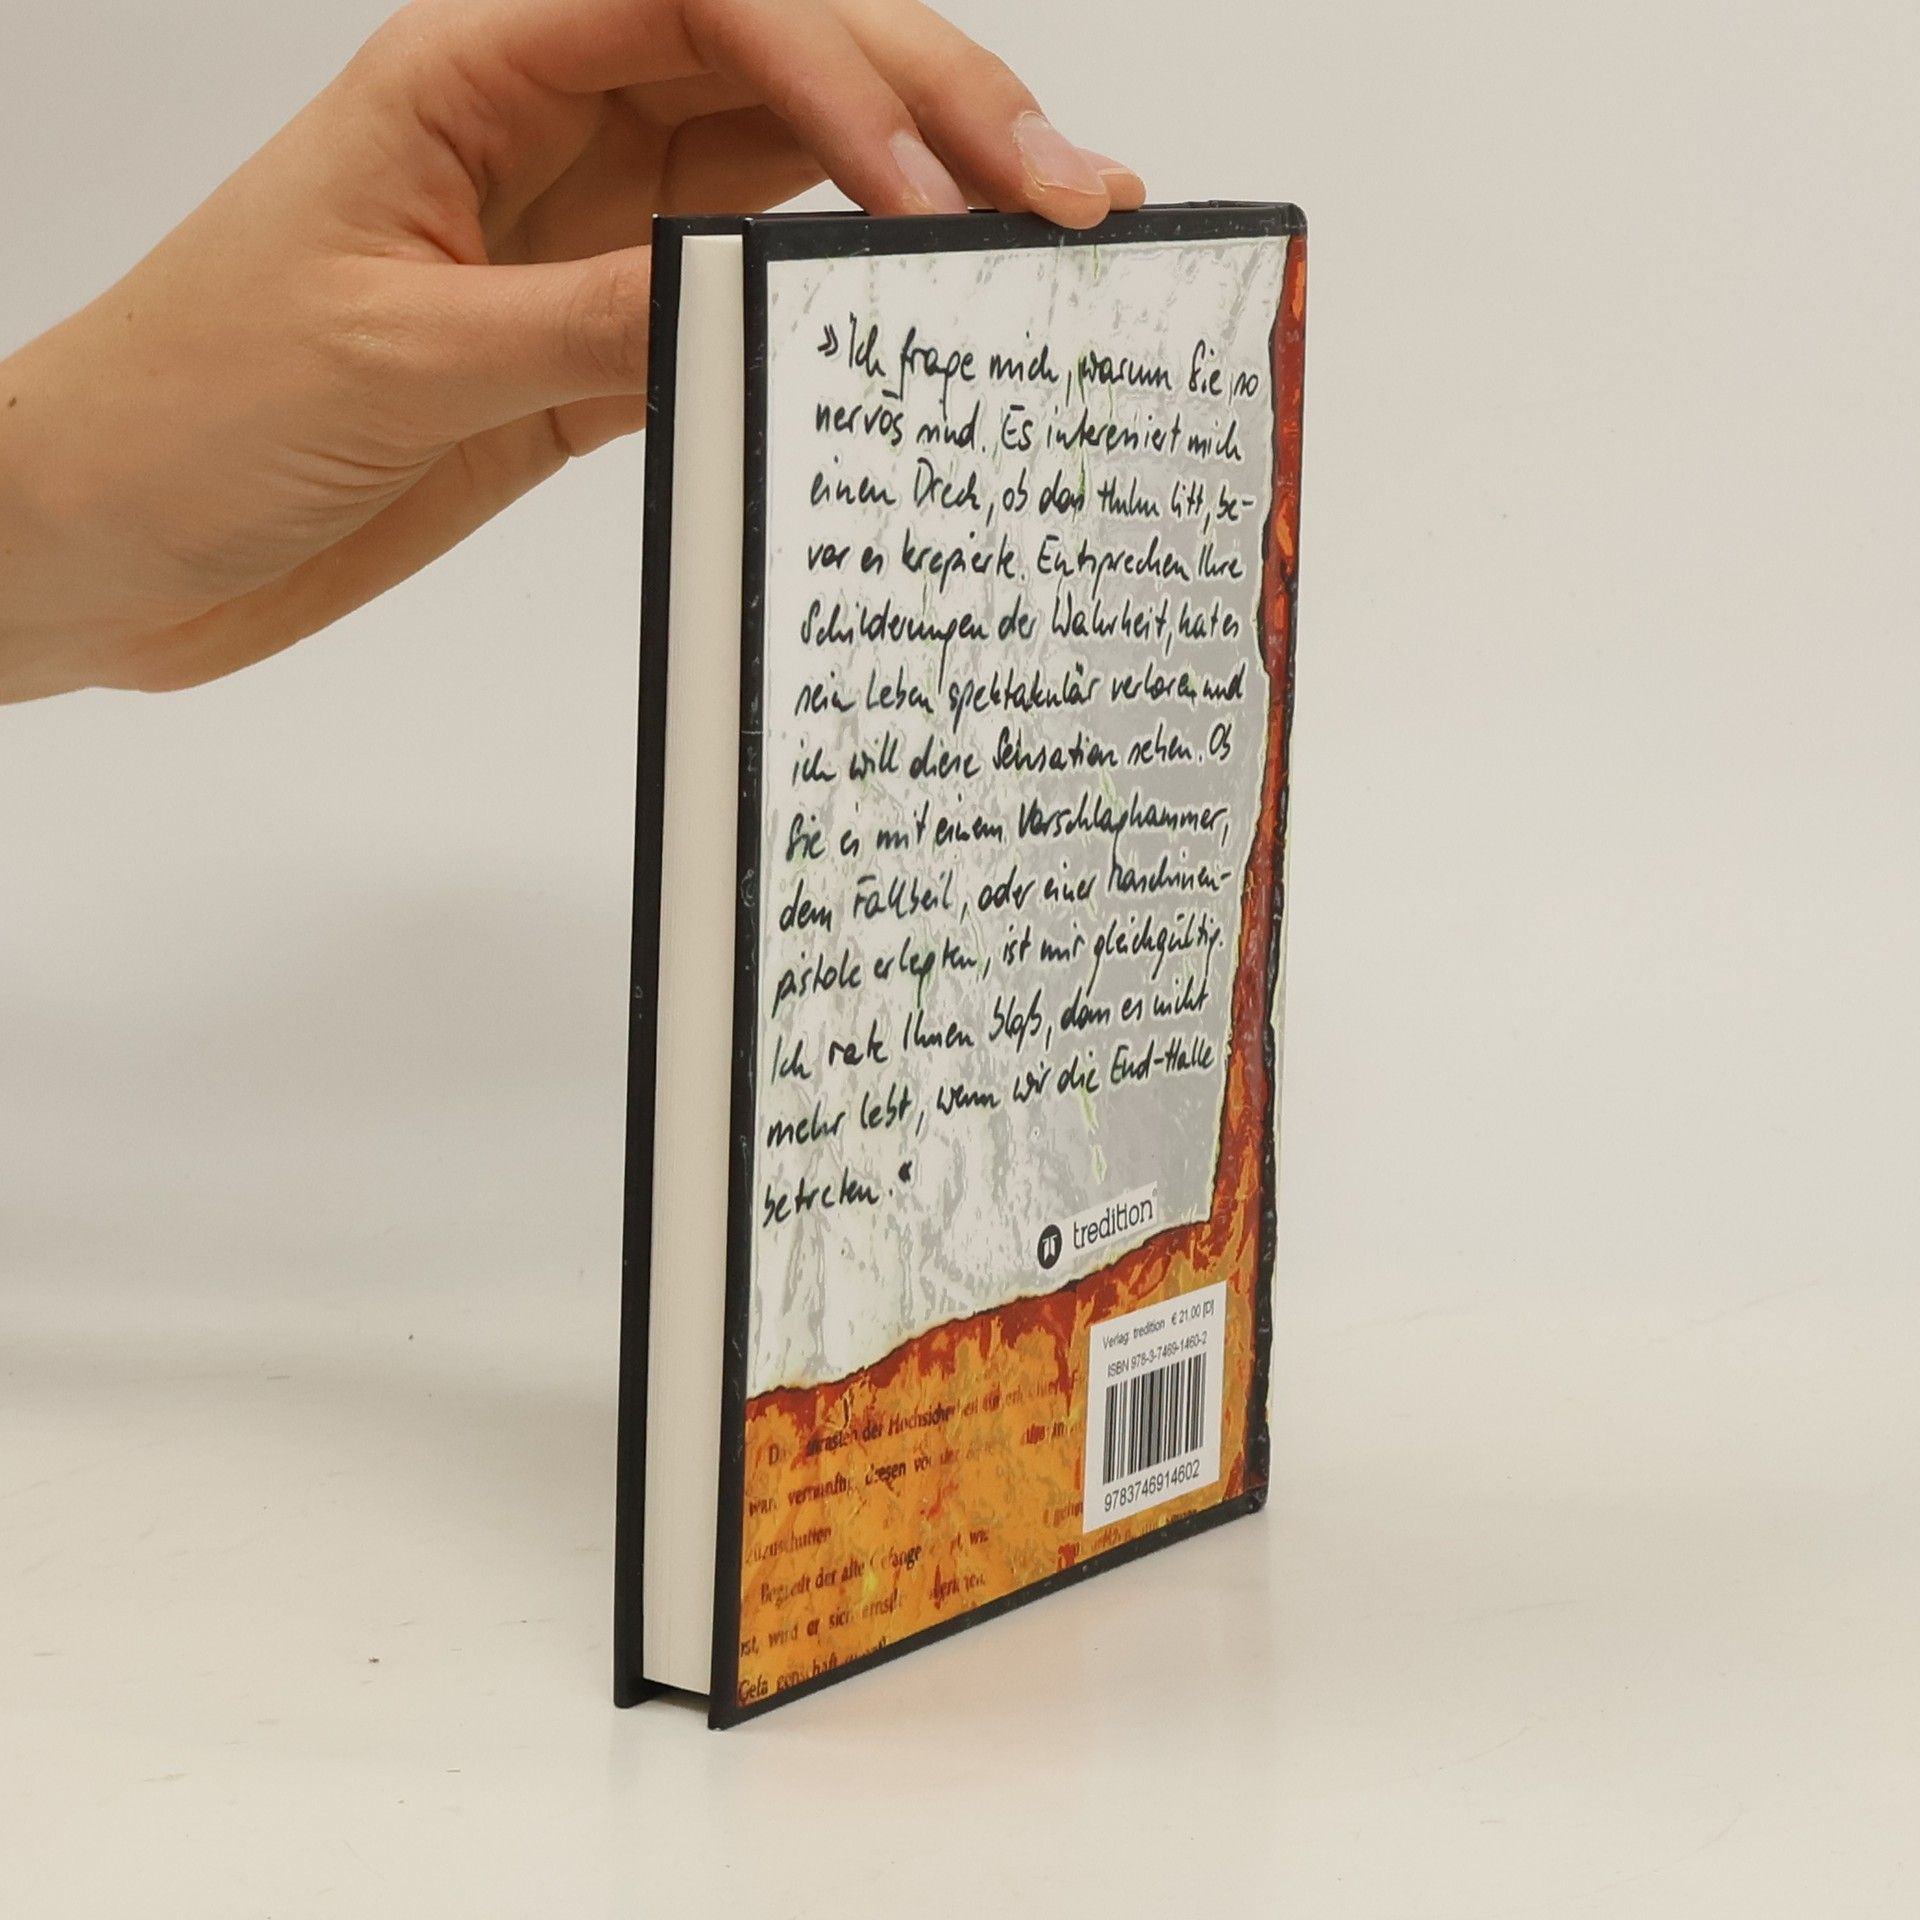 »Ich frage mich, warum Sie so
nervös sind. Es interessiert mich
einen Dreck, ob das Huhn litt, be-
vor es krepierte. Entsprechen Ihre
Schilderungen der Wahrheit, hat es
sein Leben spektakulär verloren und
ich will diese Sensation sehen. Ob
Sie es mit einem Vorschlaghammer,
dem Fallbeil, oder einer Maschinen-
pistole erlegten, ist mir gleichgültig.
Ich rate Ihnen bloß, dass es nicht
mehr lebt, wenn wir die End-Halle
betreten.«
tredition
Verlag: tredition € 21.00 [D]
ISBN 978-3-7469-1460-2
9783746914602
der Hochsicherheit
diesen von der
zuzuschütten
der alte
wird er sich